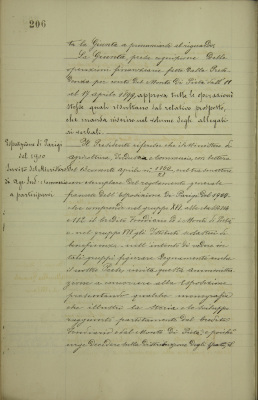 206
ta la Giunta a pronunciarsi al riguardo.
La Giunta, presa cognizione delle
operazioni finanziarie fatte dalla Pre-
sidenza per conto del Monte di Pietà dall' 11
al 17 aprile 1899, approva tutte le operazioni
stesse quali risultano dal relativo prospetto,
che manda inserire nel volume degli allegati
ai verbali.
Esposizione di Parigi
del 1900
Invito del Ministero
di Agr. Ind. e Commercio
a parteciparvi
Il Presidente riferisce che il Ministero di
agricoltura, industria e commercio, con lettera
aprile
un esemplare del regolamento generale
francese dell'Esposizione di Parigi del 1900,
che comprende nel gruppo XVI alle classi
e 112 il Credito fondiario e i Monti di Pietà
e nel gruppo XVI gli Istituti
beneficenza
tali gruppi figurare degnamente anche
il nostro Paese, invita questa amministra-
zione a concorrere alla Esposizione
presentando qualche monografia
che illustri la storia e lo sviluppo
raggiunti partitamente dal Credito
fondiario e dal Monte di Pietà, e poiché